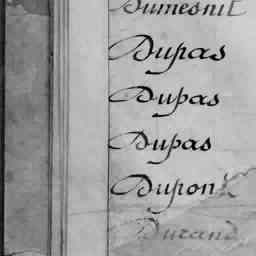 Dumesnil
Dupas
Dupas
Dupas
Dupont
Durand